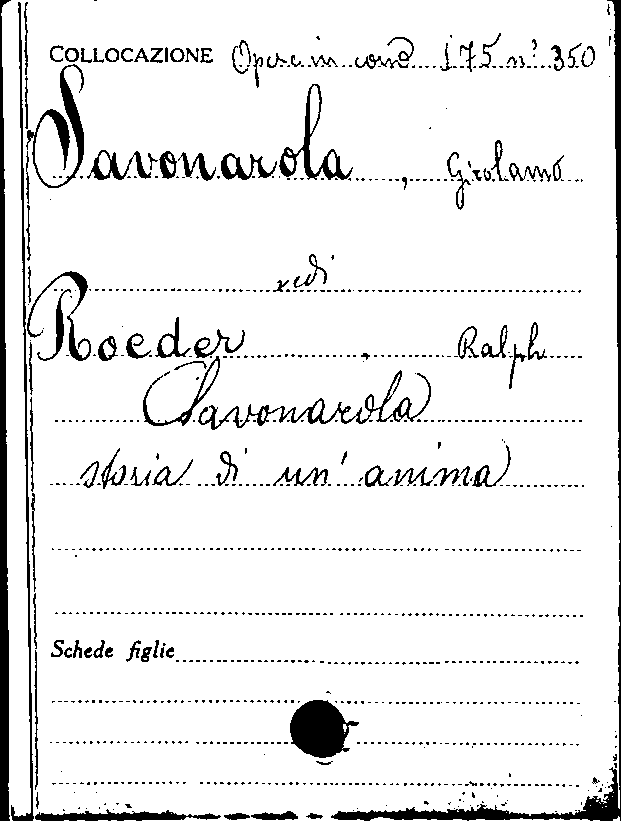 COLLOCAZIONE Opere in cons 175 n° 350
Savonarola, Girolamo
vedi
Roeder, Ralph
Savonarola
storia di un' anima
Schede figlie